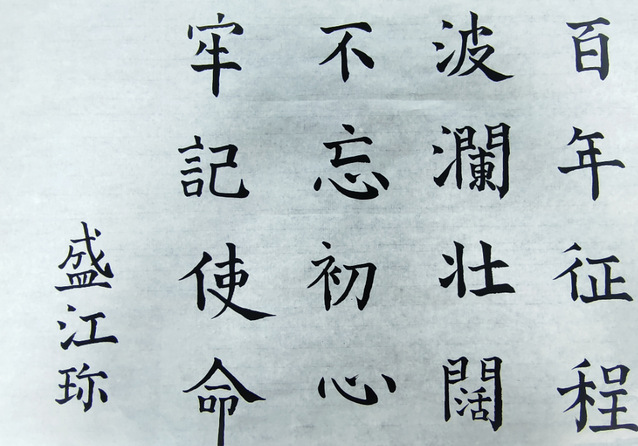 百年征程
波瀾壮闊
不忘初心
牢記使命
盛江珎